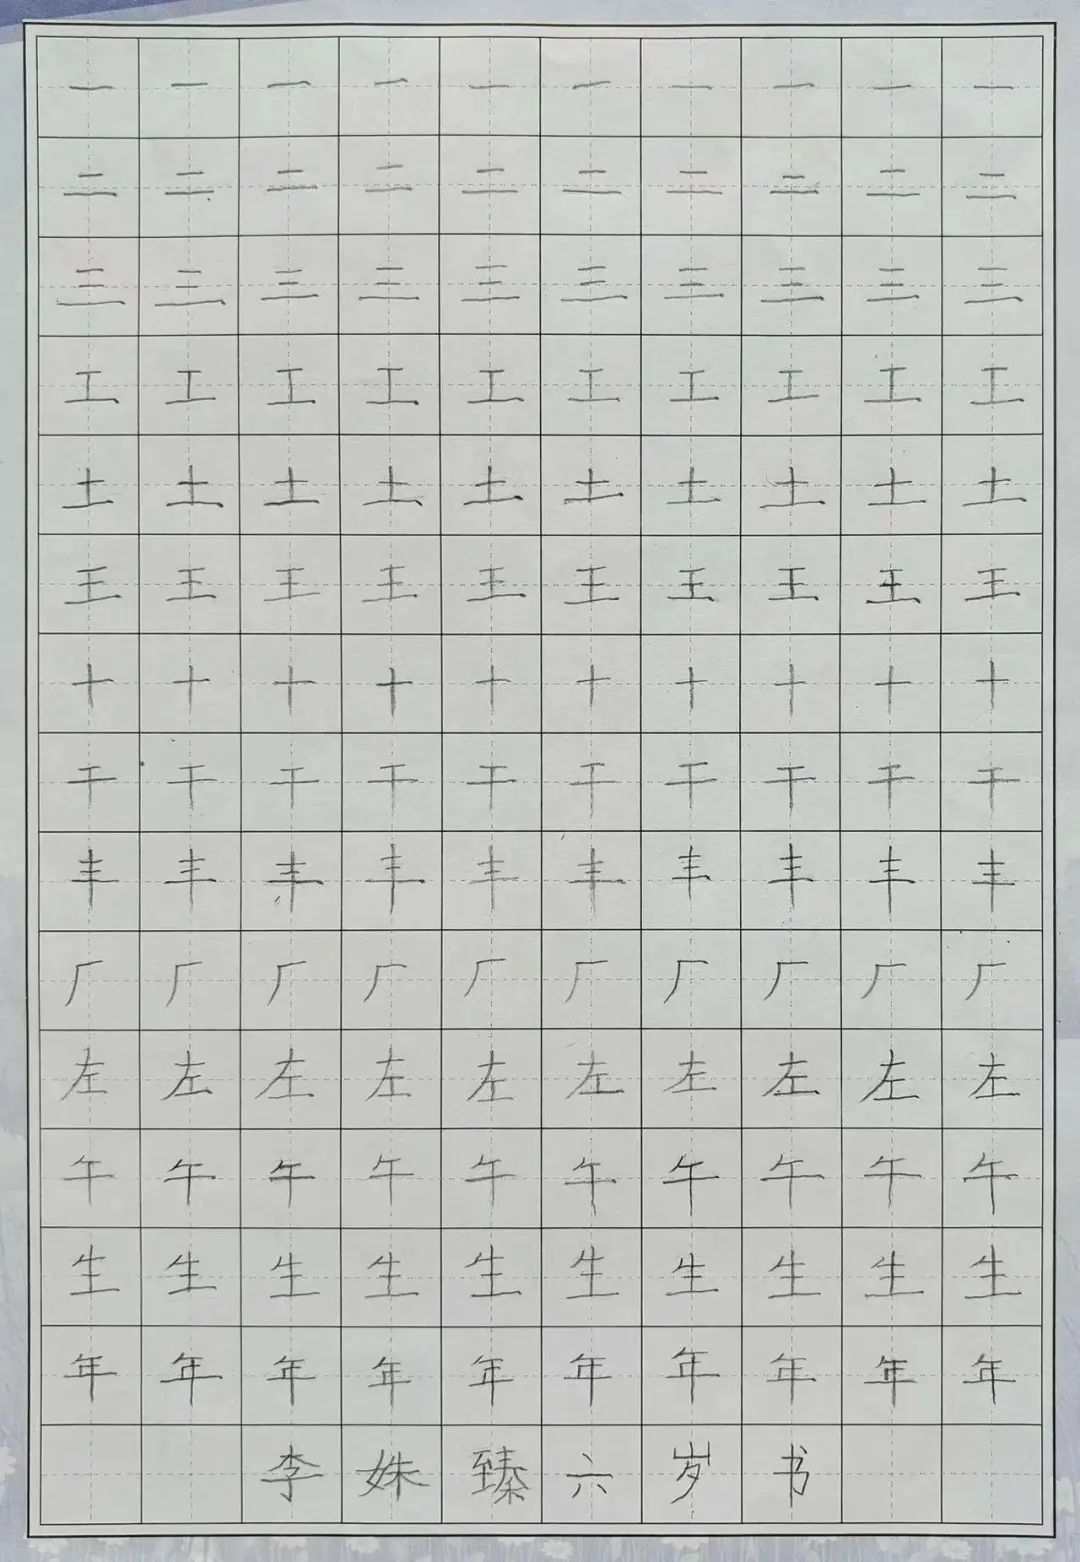 一一一一一一一一一一
二二二二二二二二二二
三三三三三三三三三三
工工工工工工工工工工
土土土土土土土土土土
王王王王王王王王王王
十十十十十十十十十十
干干干干干干干干干干
丰丰丰丰丰丰丰丰丰丰
厂厂厂厂厂厂厂厂厂厂
左左左左左左左左左左
午午午午午午午午午午
生生生生生生生生生生
年年年年年年年年年年
李姝臻六岁书